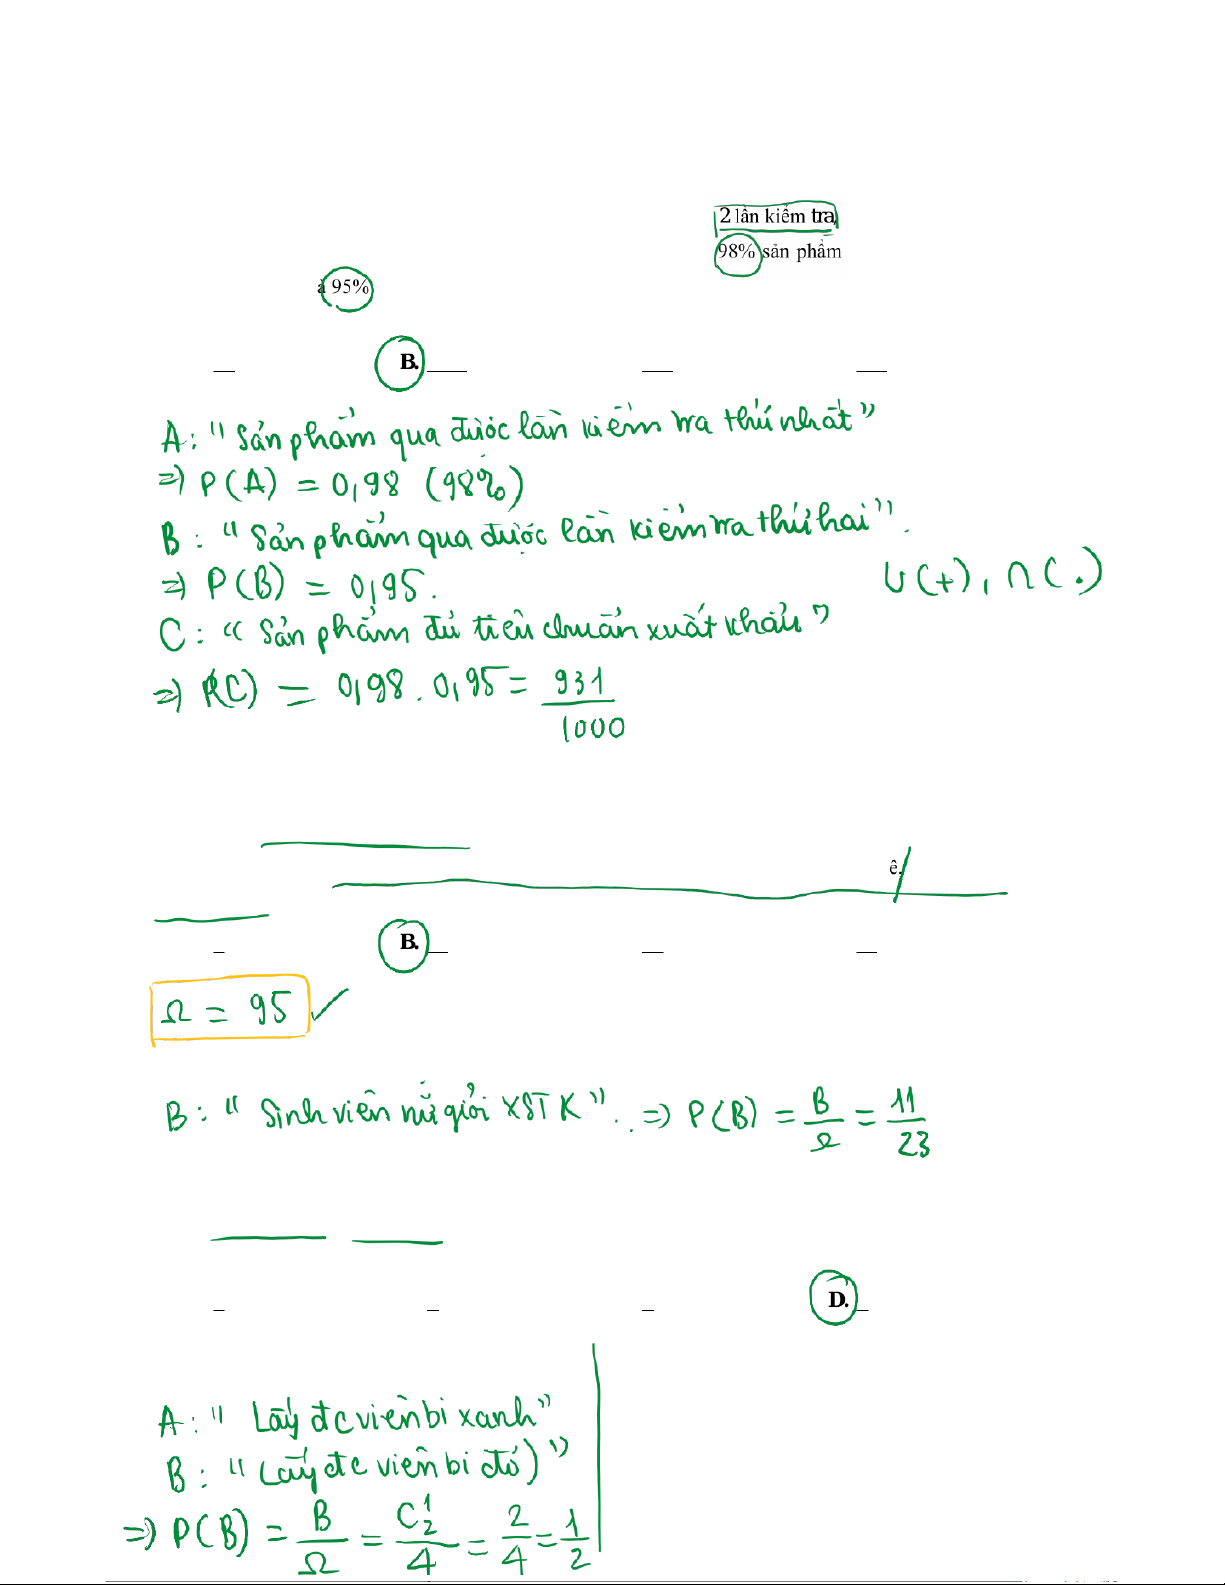 2 lần kiểm tra,
98% sản phẩm
à 95%
B.
A: "Sản phẩm qua được lần kiểm tra thứ nhất"
=> P(A) = 0,98 (98%)
B: "Sản phẩm qua được lần kiểm tra thứ hai".
=> P(B) = 0,95.
∪(+), ∩(.)
C: "Sản phẩm đủ tiêu chuẩn xuất khẩu"
=> P(C) = 0,98 . 0,95 = 931/1000
ê.
B.
Ω = 95 ✓
B: "Sinh viên nữ giỏi XSTK". => P(B) = B/Ω = 11/23
D.
A: "Lấy đc viên bi xanh"
B: "Lấy đc viên bi đỏ)"
=> P(B) = B/Ω = C₂¹/4 = 2/4 = 1/2